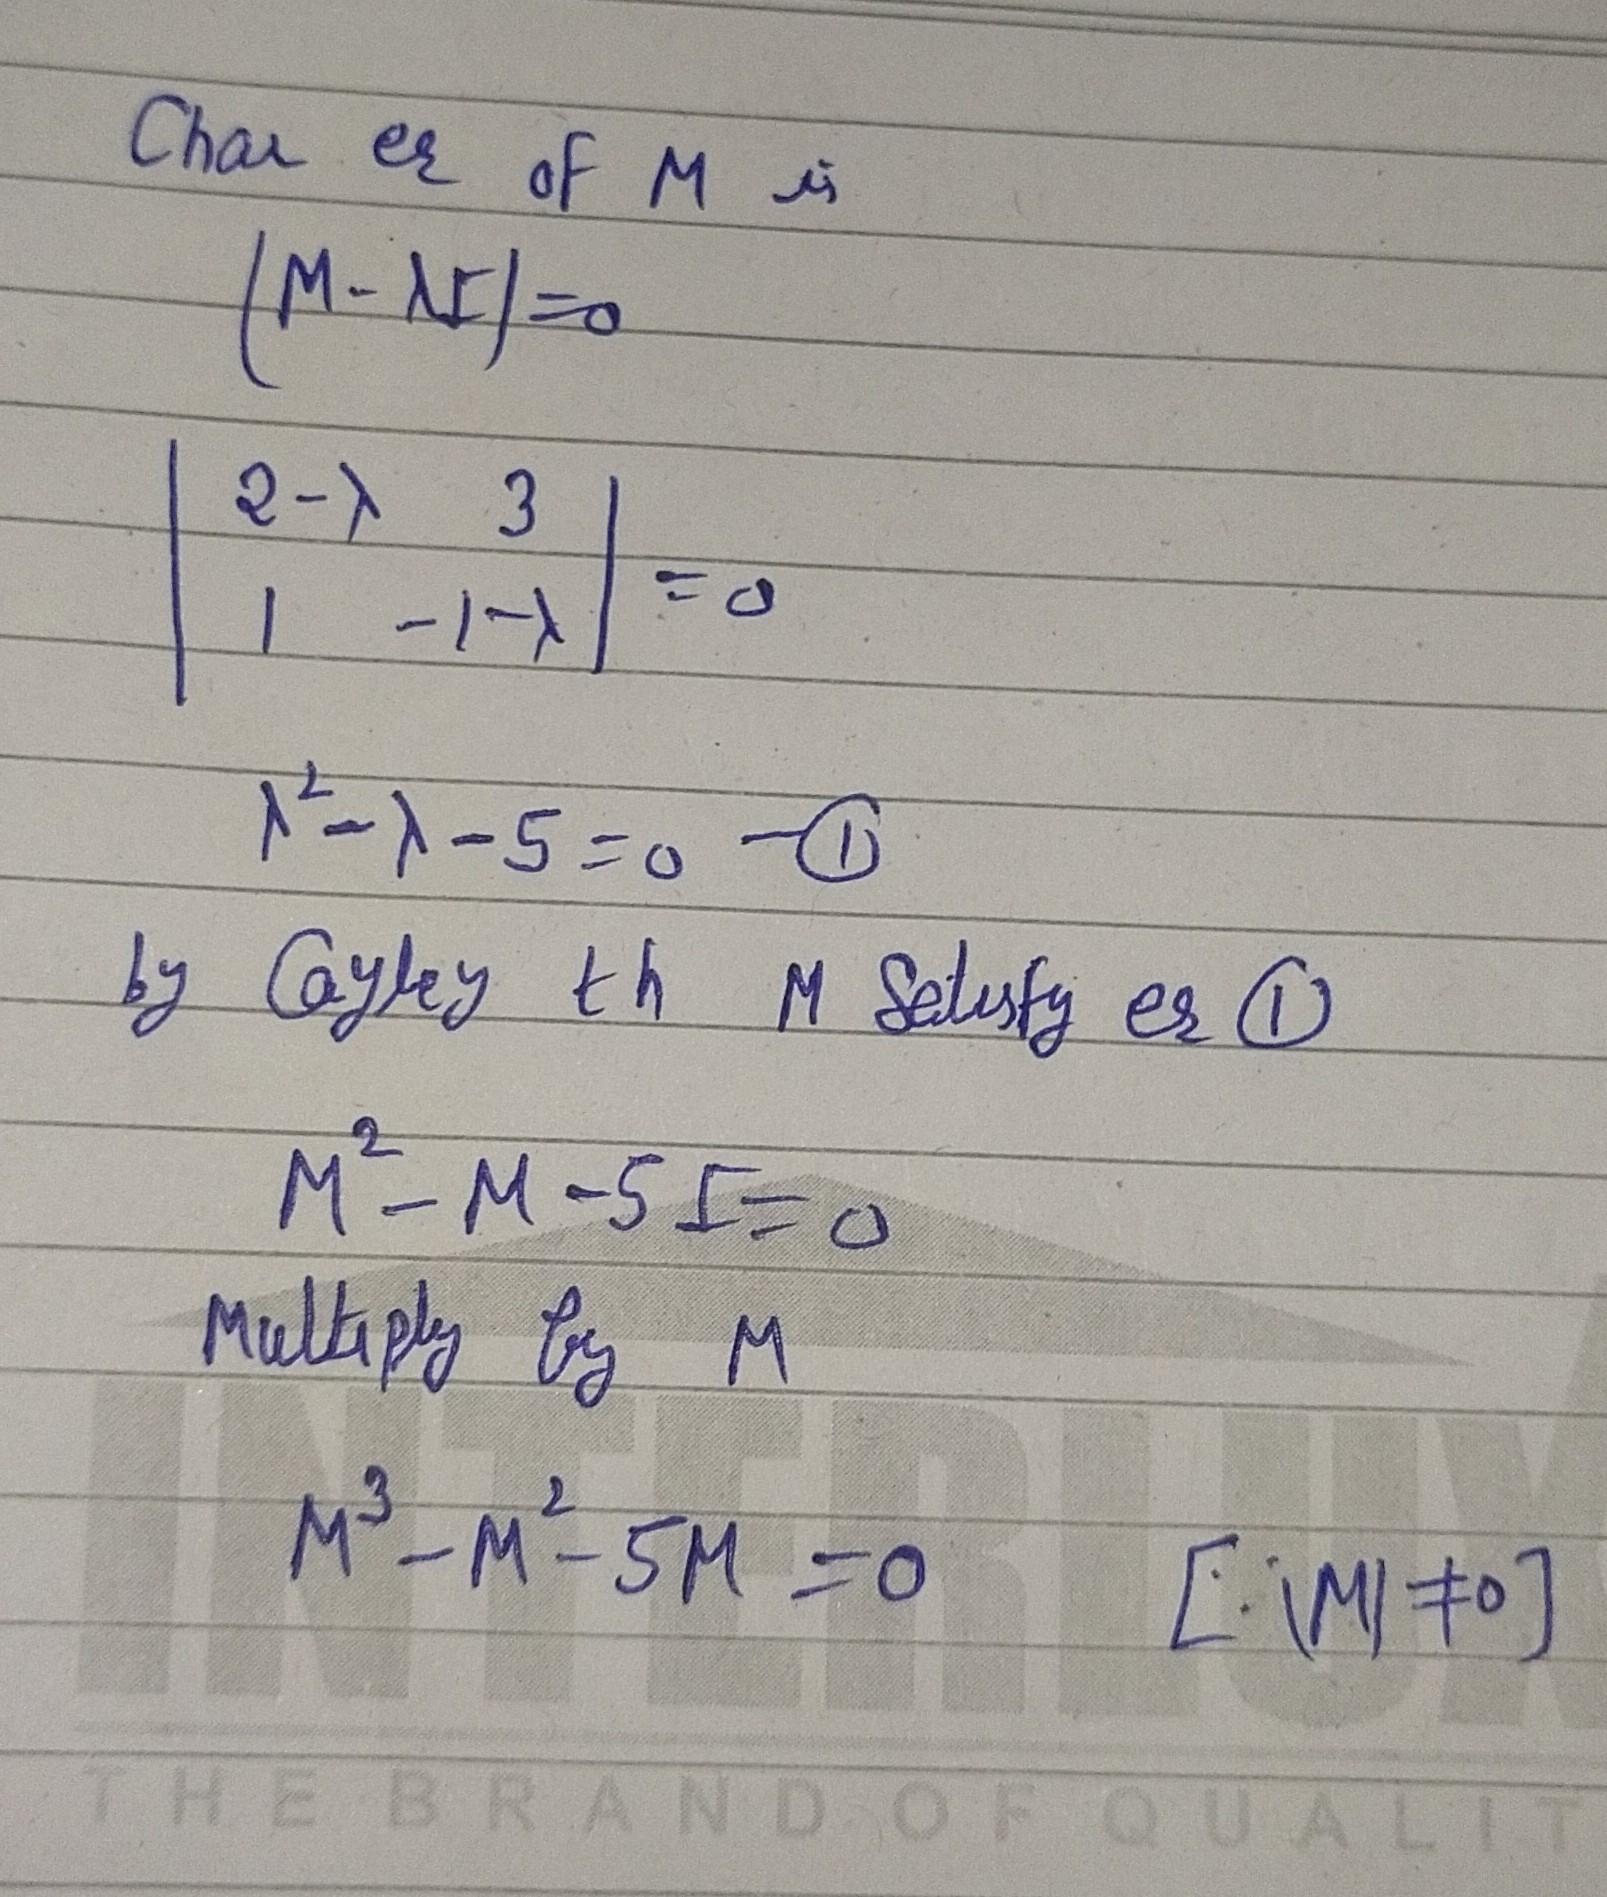 Char eq of M is
|M - λI| = 0
| 2-λ 3 |
| 1 -1-λ | = 0
λ² - λ - 5 = 0 - ①
by Cayley th M Satisfy eq ①
M² - M - 5I = 0
Multiply by M
M³ - M² - 5M = 0 [∵ |M| ≠ 0]
INTERLUX
THE BRAND OF QUALIT